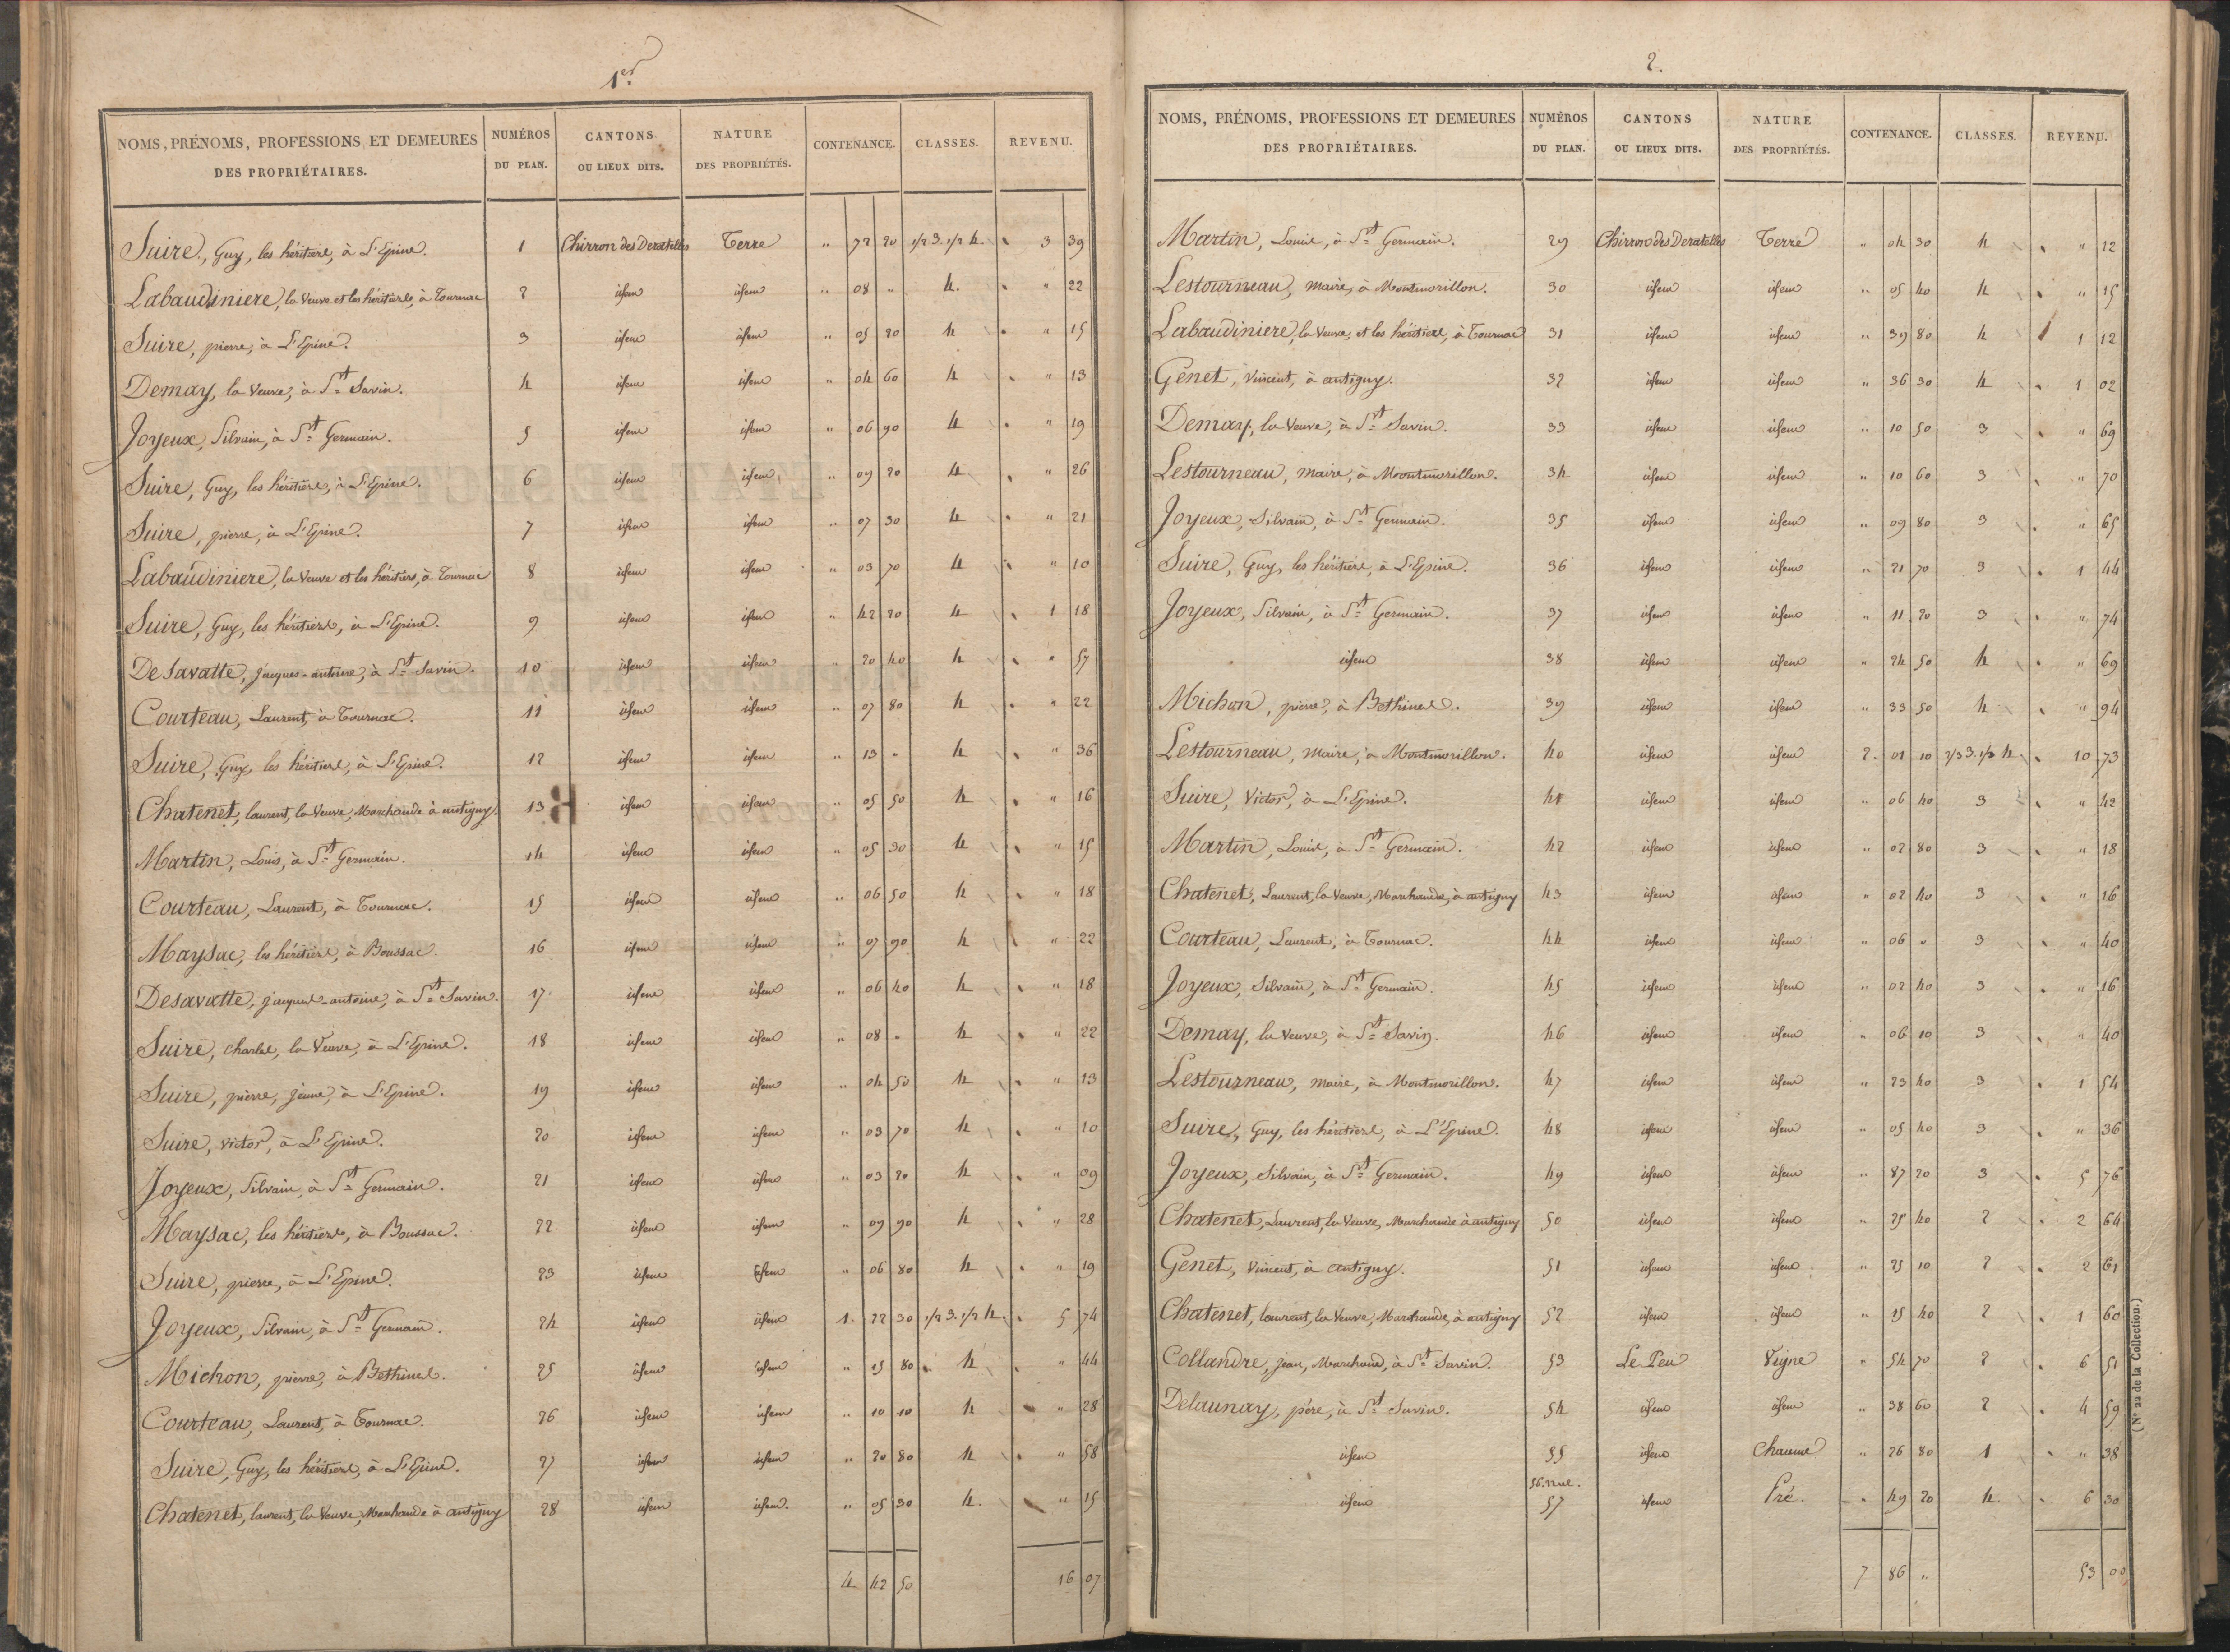 1er
NOMS, PRÉNOMS, PROFESSIONS ET DEMEURES DES PROPRIÉTAIRES. | NUMÉROS DU PLAN. | CANTONS OU LIEUX DITS. | NATURE DES PROPRIÉTÉS. | CONTENANCE. | CLASSES. | REVENU.
Suire, Guy, les héritiers, à L'Epine. 1 Chirron des Deratelles Terre " 72 20 1/2 3. 1/2 4. 3 39
Labaudiniere, la Veuve et les héritiers, à Tournac 2 idem idem " 08 " 4. " 22
Suire, pierre, à L'Epine. 3 idem idem " 05 20 4 " 15
Demay, la Veuve, à St Savin. 4 idem idem " 04 60 4 " 13
Joyeux, Silvain, à St Germain. 5 idem idem " 06 90 4 " 19
Suire, Guy, les héritiers, à L'Epine. 6 idem idem " 09 20 4 " 26
Suire, pierre, à L'Epine. 7 idem idem " 07 30 4 " 21
Labaudiniere, la Veuve et les héritiers, à Tournac 8 idem idem " 03 70 4 " 10
Suire, Guy, les héritiers, à L'Epine. 9 idem idem " 42 20 4 1 18
Desavatte, jacques-antoine, à St Savin. 10 idem idem " 20 40 4 " 57
Courteau, Laurent, à Tournac. 11 idem idem " 07 80 4 " 22
Suire, Guy, les héritiers, à L'Epine. 12 idem idem " 13 " 4 " 36
Chatenet, laurent, la Veuve, Marchande à antigny. 13 idem idem " 05 50 4 " 16
Martin, Louis, à St Germain. 14 idem idem " 05 30 4 " 15
Courteau, Laurent, à Tournac. 15 idem idem " 06 50 4 " 18
Maysac, les héritiers, à Boussac. 16 idem idem " 07 90 4 " 22
Desavatte, jacques-antoine, à St Savin. 17 idem idem " 06 40 4 " 18
Suire, charles, la Veuve, à L'Epine. 18 idem idem " 08 " 4 " 22
Suire, pierre, jeune, à L'Epine. 19 idem idem " 04 50 4 " 13
Suire, victor, à L'Epine. 20 idem idem " 03 70 4 " 10
Joyeux, Silvain, à St Germain. 21 idem idem " 03 20 4 " 09
Maysac, les héritiers, à Boussac. 22 idem idem " 09 90 4 " 28
Suire, pierre, à L'Epine. 23 idem idem " 06 80 4 " 19
Joyeux, Silvain, à St Germain. 24 idem idem 1. 22 30 1/2 3. 1/2 4. 5 74
Michon, pierre, à Bethines. 25 idem idem " 15 80 4 " 44
Courteau, Laurent, à Tournac. 26 idem idem " 10 10 4 " 28
Suire, Guy, les héritiers, à L'Epine. 27 idem idem " 20 80 4 " 58
Chatenet, laurent, la Veuve, Marchande à antigny 28 idem idem. " 05 30 4. " 15
4. 42 50 16 07
2.
NOMS, PRÉNOMS, PROFESSIONS ET DEMEURES DES PROPRIÉTAIRES. | NUMÉROS DU PLAN. | CANTONS OU LIEUX DITS. | NATURE DES PROPRIÉTÉS. | CONTENANCE. | CLASSES. | REVENU.
Martin, Louis, à St Germain. 29 Chirron des Deratelles Terre " 04 30 4 " 12
Lestourneau, maire, à Montmorillon. 30 idem idem " 05 40 4 " 15
Labaudiniere, la Veuve, et les héritiers, à Tournac 31 idem idem " 39 80 4 1 12
Genet, Vincent, à antigny. 32 idem idem " 36 30 4 1 02
Demay, la Veuve, à St Savin. 33 idem idem " 10 50 3 " 69
Lestourneau, maire, à Montmorillon. 34 idem idem " 10 60 3 " 70
Joyeux, Silvain, à St Germain. 35 idem idem " 09 80 3 " 65
Suire, Guy, les héritiers, à L'Epine. 36 idem idem " 21 70 3 1 44
Joyeux, Silvain, à St Germain. 37 idem idem " 11 20 3 " 74
idem 38 idem idem " 24 50 4 " 69
Michon, pierre, à Bethines. 39 idem idem " 33 50 4 " 94
Lestourneau, maire, à Montmorillon. 40 idem idem 2. 01 10 2/3 3. 1/3 4. 10 73
Suire, Victor, à L'Epine. 41 idem idem " 06 40 3 " 42
Martin, Louis, à St Germain. 42 idem idem " 02 80 3 " 18
Chatenet, Laurent, la Veuve, Marchande, à antigny 43 idem idem " 02 40 3 " 16
Courteau, Laurent, à Tournac. 44 idem idem " 06 " 3 " 40
Joyeux, Silvain, à St Germain. 45 idem idem " 02 40 3 " 16
Demay, la Veuve, à St Savin. 46 idem idem " 06 10 3 " 40
Lestourneau, maire, à Montmorillon. 47 idem idem " 23 40 3 1 54
Suire, Guy, les héritiers, à L'Epine. 48 idem idem " 05 40 3 " 36
Joyeux, Silvain, à St Germain. 49 idem idem " 87 20 3 5 76
Chatenet, Laurent, la Veuve, Marchande à antigny 50 idem idem " 25 40 2 2 64
Genet, Vincent, à antigny. 51 idem idem " 25 10 2 2 61
Chatenet, laurent, la Veuve, Marchande, à antigny 52 idem idem " 15 40 2 1 60
Collandre, Jean, Marchand, à St Savin. 53 Le Peu Vigne " 54 70 2 6 51
Delaunay, père, à St Savin. 54 idem idem " 38 60 2 4 59
idem 55 idem Chaume " 26 80 1 " 38
56. nul.
idem 57 idem Pré. " 49 20 4 6 30
7 86 " 53 00
(N° 22 de la Collection.)